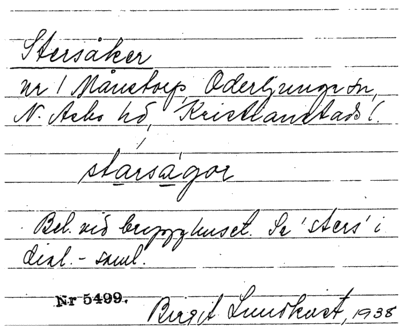 Stersåker
nr 1 Månstorp, Oderljunga sn,
N. Åsbo hd, Kristianstads l.
stársågor
Bel. vid brygghuset. Se 'sters' i
dial.-saml.
Nr 5499. Birgit Lundkvist, 1938